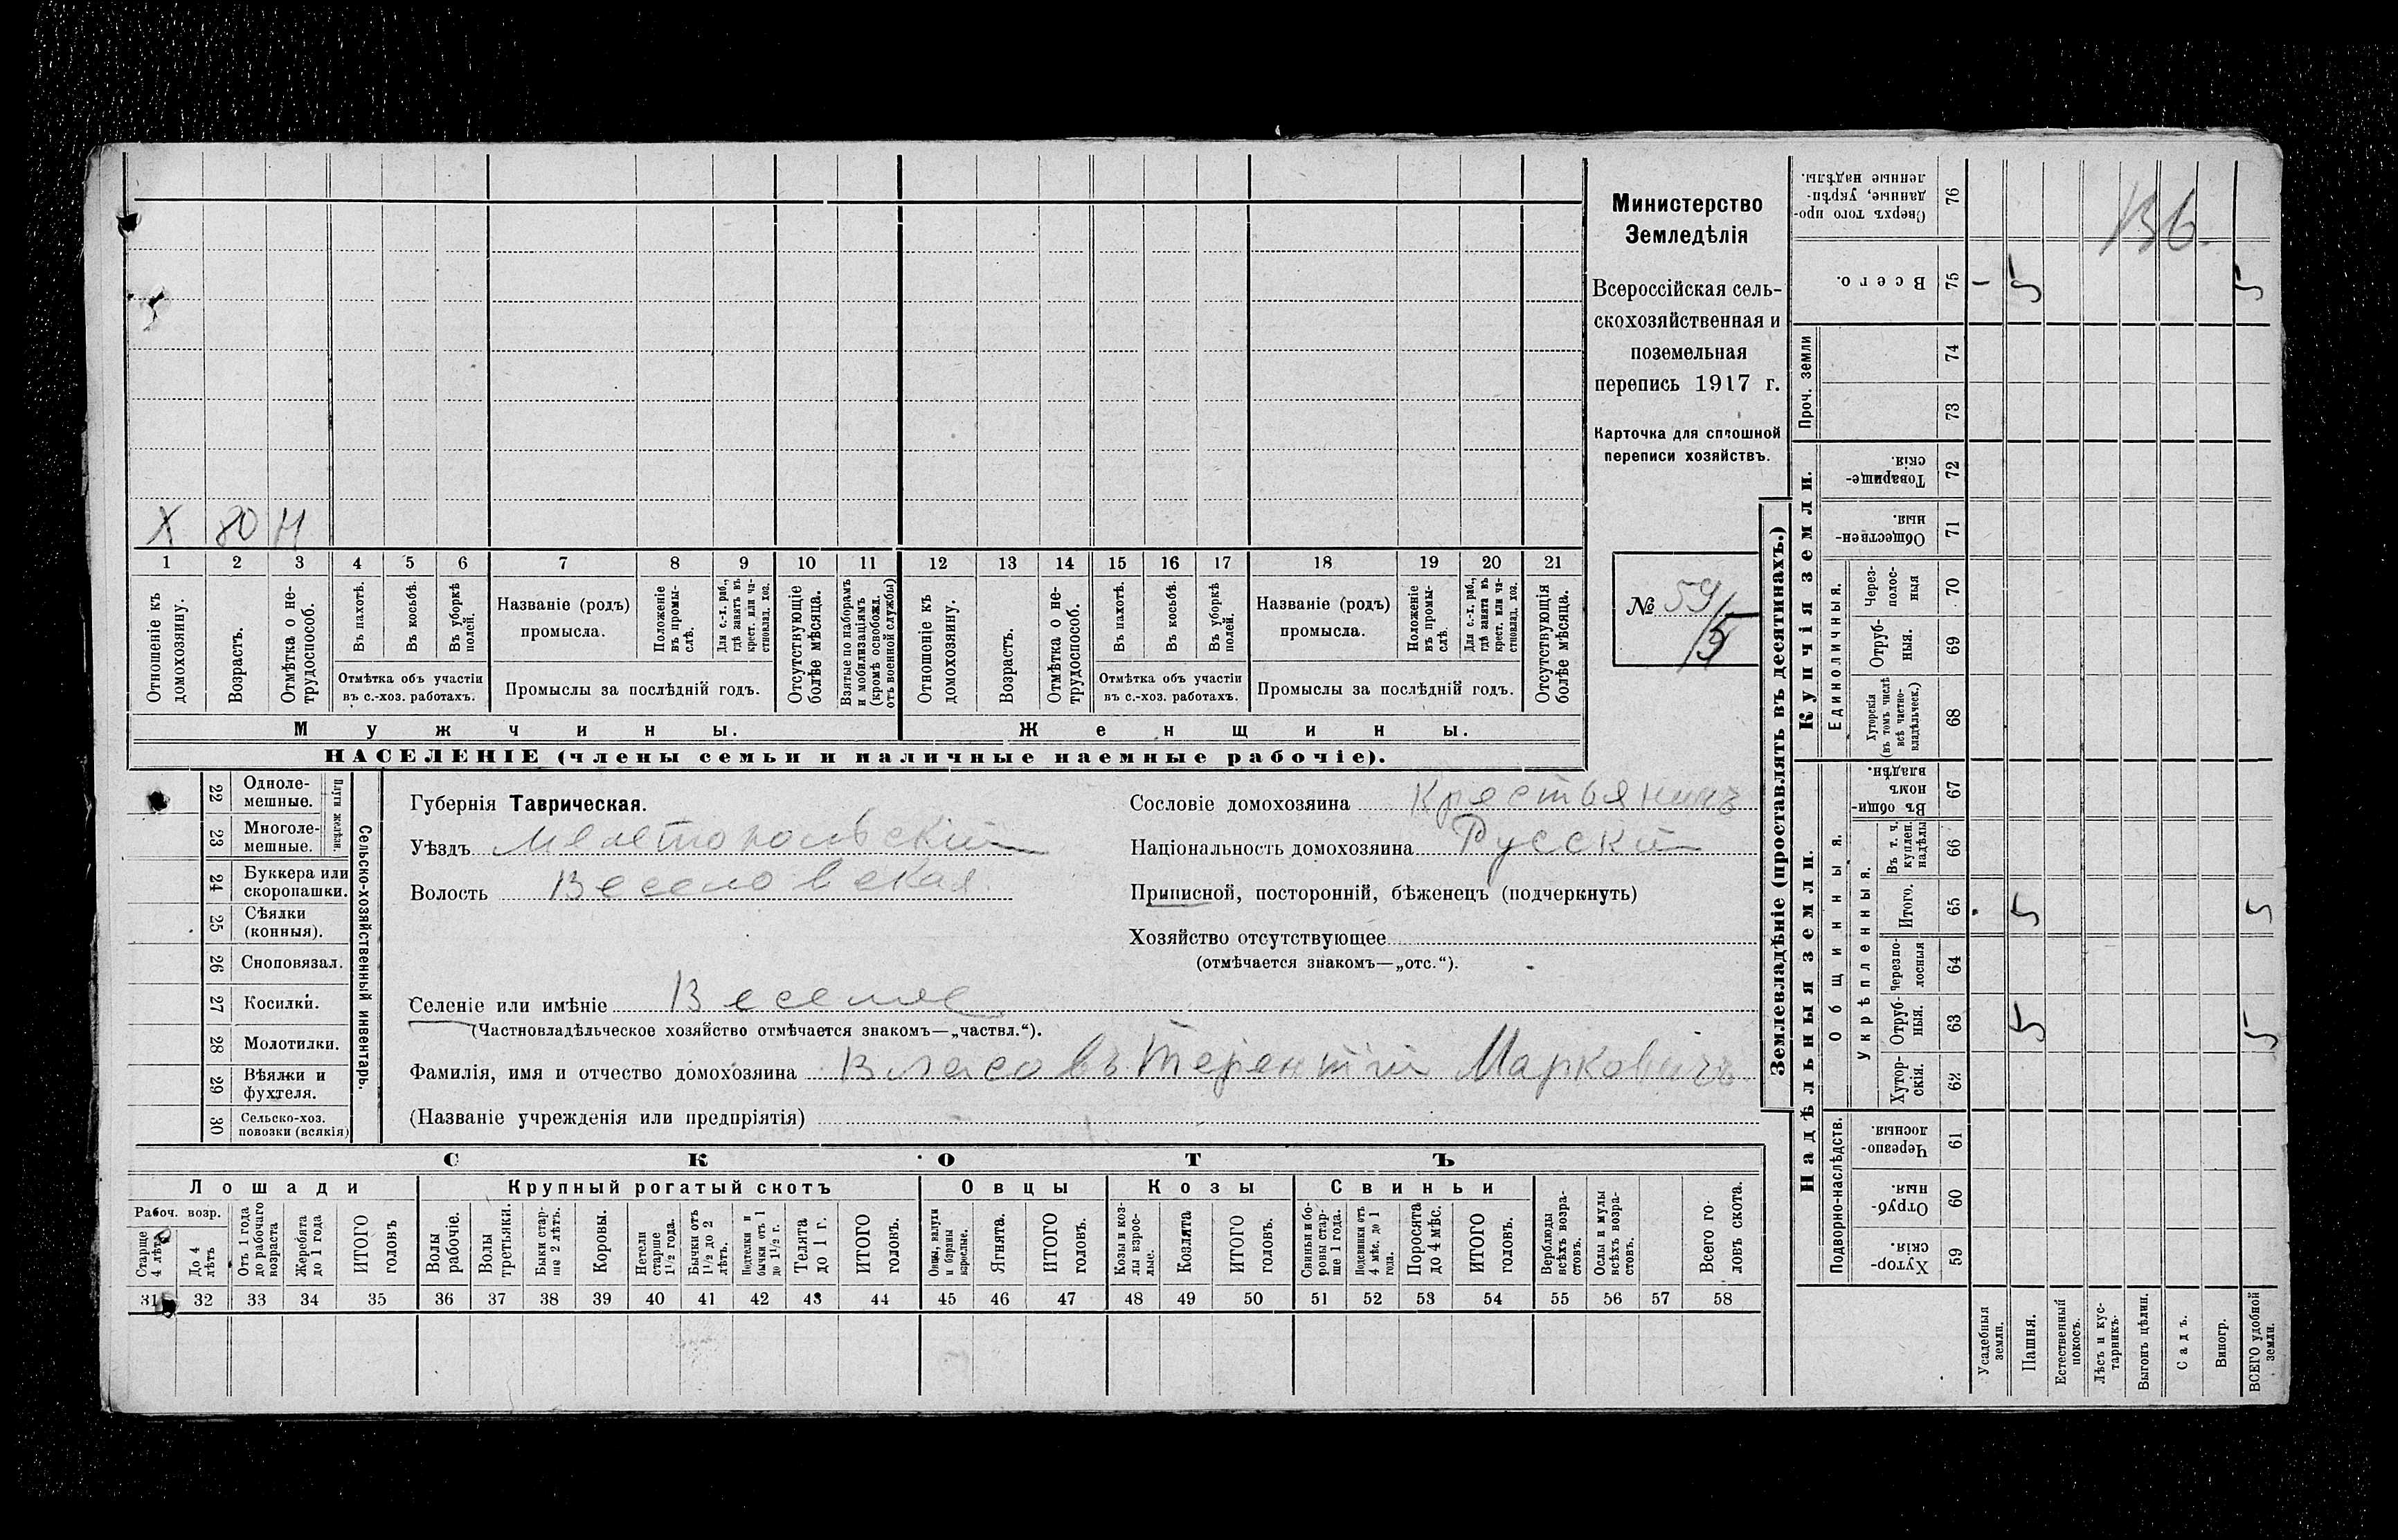 Министерство
Земледѣлія
Всероссійская сель-
скохозяйственная и
поземельная
перепись 1917 г.
Карточка для сплошной
переписи хозяйствъ.
№ 59/5
Х 80 Н
1 2 3 4 5 6 7 8 9 10 11 12 13 14 15 16 17 18 19 20 21
Отношеніе къ домохозяину.
Возрастъ.
Отмѣтка о не-трудоспособ.
Въ пахотѣ.
Въ косьбѣ.
Въ уборкѣ полей.
Отмѣтка объ участіи
въ с.-хоз. работахъ.
Названіе (родъ)
промысла.
Положеніе въ промы-слѣ.
Для с.-х. раб., гдѣ занятъ въ крест. или ча-стновлад. хоз.
Промыслы за послѣдній годъ.
Отсутствующіе болѣе мѣсяца.
Взятые по наборамъ и мобилизаціямъ (кромѣ освобожд. отъ военной службы)
Отношеніе къ домохозяину.
Возрастъ.
Отмѣтка о не-трудоспособ.
Въ пахотѣ.
Въ косьбѣ.
Въ уборкѣ полей.
Отмѣтка объ участіи
въ с.-хоз. работахъ.
Названіе (родъ)
промысла.
Положеніе въ промы-слѣ.
Для с.-х. раб., гдѣ занята въ крест. или ча-стновлад. хоз.
Промыслы за послѣдній годъ.
Отсутствующія болѣе мѣсяца.
Мужчины.
Женщины.
НАСЕЛЕНІЕ (члены семьи и наличные наемные рабочіе).
22 Одноле-мешные.
23 Многоле-мешные.
Плуги желѣзн.
24 Буккера или скоропашки.
25 Сѣялки (конныя).
26 Сноповязал.
27 Косилки.
28 Молотилки.
29 Вѣялки и фухтеля.
30 Сельско-хоз. повозки (всякія)
Сельско-хозяйственный инвентарь.
Губернія Таврическая.
Уѣздъ Мелитопольскій
Волость Веселовская
Сословіе домохозяина Крестьянинъ
Національность домохозяина Русскій
Приписной, посторонній, бѣженецъ (подчеркнуть)
Хозяйство отсутствующее
(отмѣчается знакомъ—„отс.“).
Селеніе или имѣніе Веселое
(Частновладѣльческое хозяйство отмѣчается знакомъ—„частвл.“).
Фамилія, имя и отчество домохозяина Власовъ Терентій Марковичъ
(Названіе учрежденія или предпріятія)
СКОТЪ
Лошади
Крупный рогатый скотъ
Овцы
Козы
Свиньи
Рабоч. возр.
Старше 4 лѣтъ
До 4 лѣтъ
Отъ 1 года до рабочаго возраста
Жеребята до 1 года
ИТОГО головъ
Волы рабочіе.
Волы третьяки.
Быки стар-ше 2 лѣтъ.
Коровы.
Нетели старше 1½ года.
Бычки отъ 1½ до 2 лѣтъ.
Подтелки и бычки отъ 1 до 1½ г.
Телята до 1 г.
ИТОГО головъ.
Овцы, валухи и бараны взрослые.
Ягнята.
ИТОГО головъ.
Козы и коз-лы взрос-лые.
Козлята
ИТОГО головъ.
Свиньи и бо-ровы стар-ше 1 года.
Подсвинки отъ 4 мѣс. до 1 года.
Поросята до 4 мѣс.
ИТОГО головъ.
Верблюды всѣхъ возра-стовъ.
Ослы и мулы всѣхъ возра-стовъ.
Всего го-ловъ скота.
31 32 33 34 35 36 37 38 39 40 41 42 43 44 45 46 47 48 49 50 51 52 53 54 55 56 57 58
Землевладѣніе (проставлять въ десятинахъ.)
Надѣльныя земли.
Купчія земли.
Проч. земли
Сверхъ того про-данные, укрѣп-ленные надѣлы. 76
136
Всего. 75 - 5 5
74
73
Товарище-скія. 72
Обществен-ныя. 71
Единоличныя.
Через-полос-ныя 70
Отруб-ныя. 69
Хуторскія (въ томъ числѣ всѣ частно-владѣльческ.) 68
Общинныя.
Въ общи-номъ владѣн. 67
Укрѣпленныя.
Въ т. ч. куплен. надѣлы 66
Итого. 65 5 5
Черезпо-лосныя 64
Отруб-ныя. 63 5 5
Хутор-скія. 62
Подворно-наслѣдств.
Черезпо-лосныя. 61
Отруб-ныя. 60
Хутор-скія. 59
Усадебныя земли.
Пашня.
Естественный покосъ.
Лѣсъ и кус-тарникъ.
Выгонъ цѣлин.
Садъ.
Виногр.
ВСЕГО удобной земли.